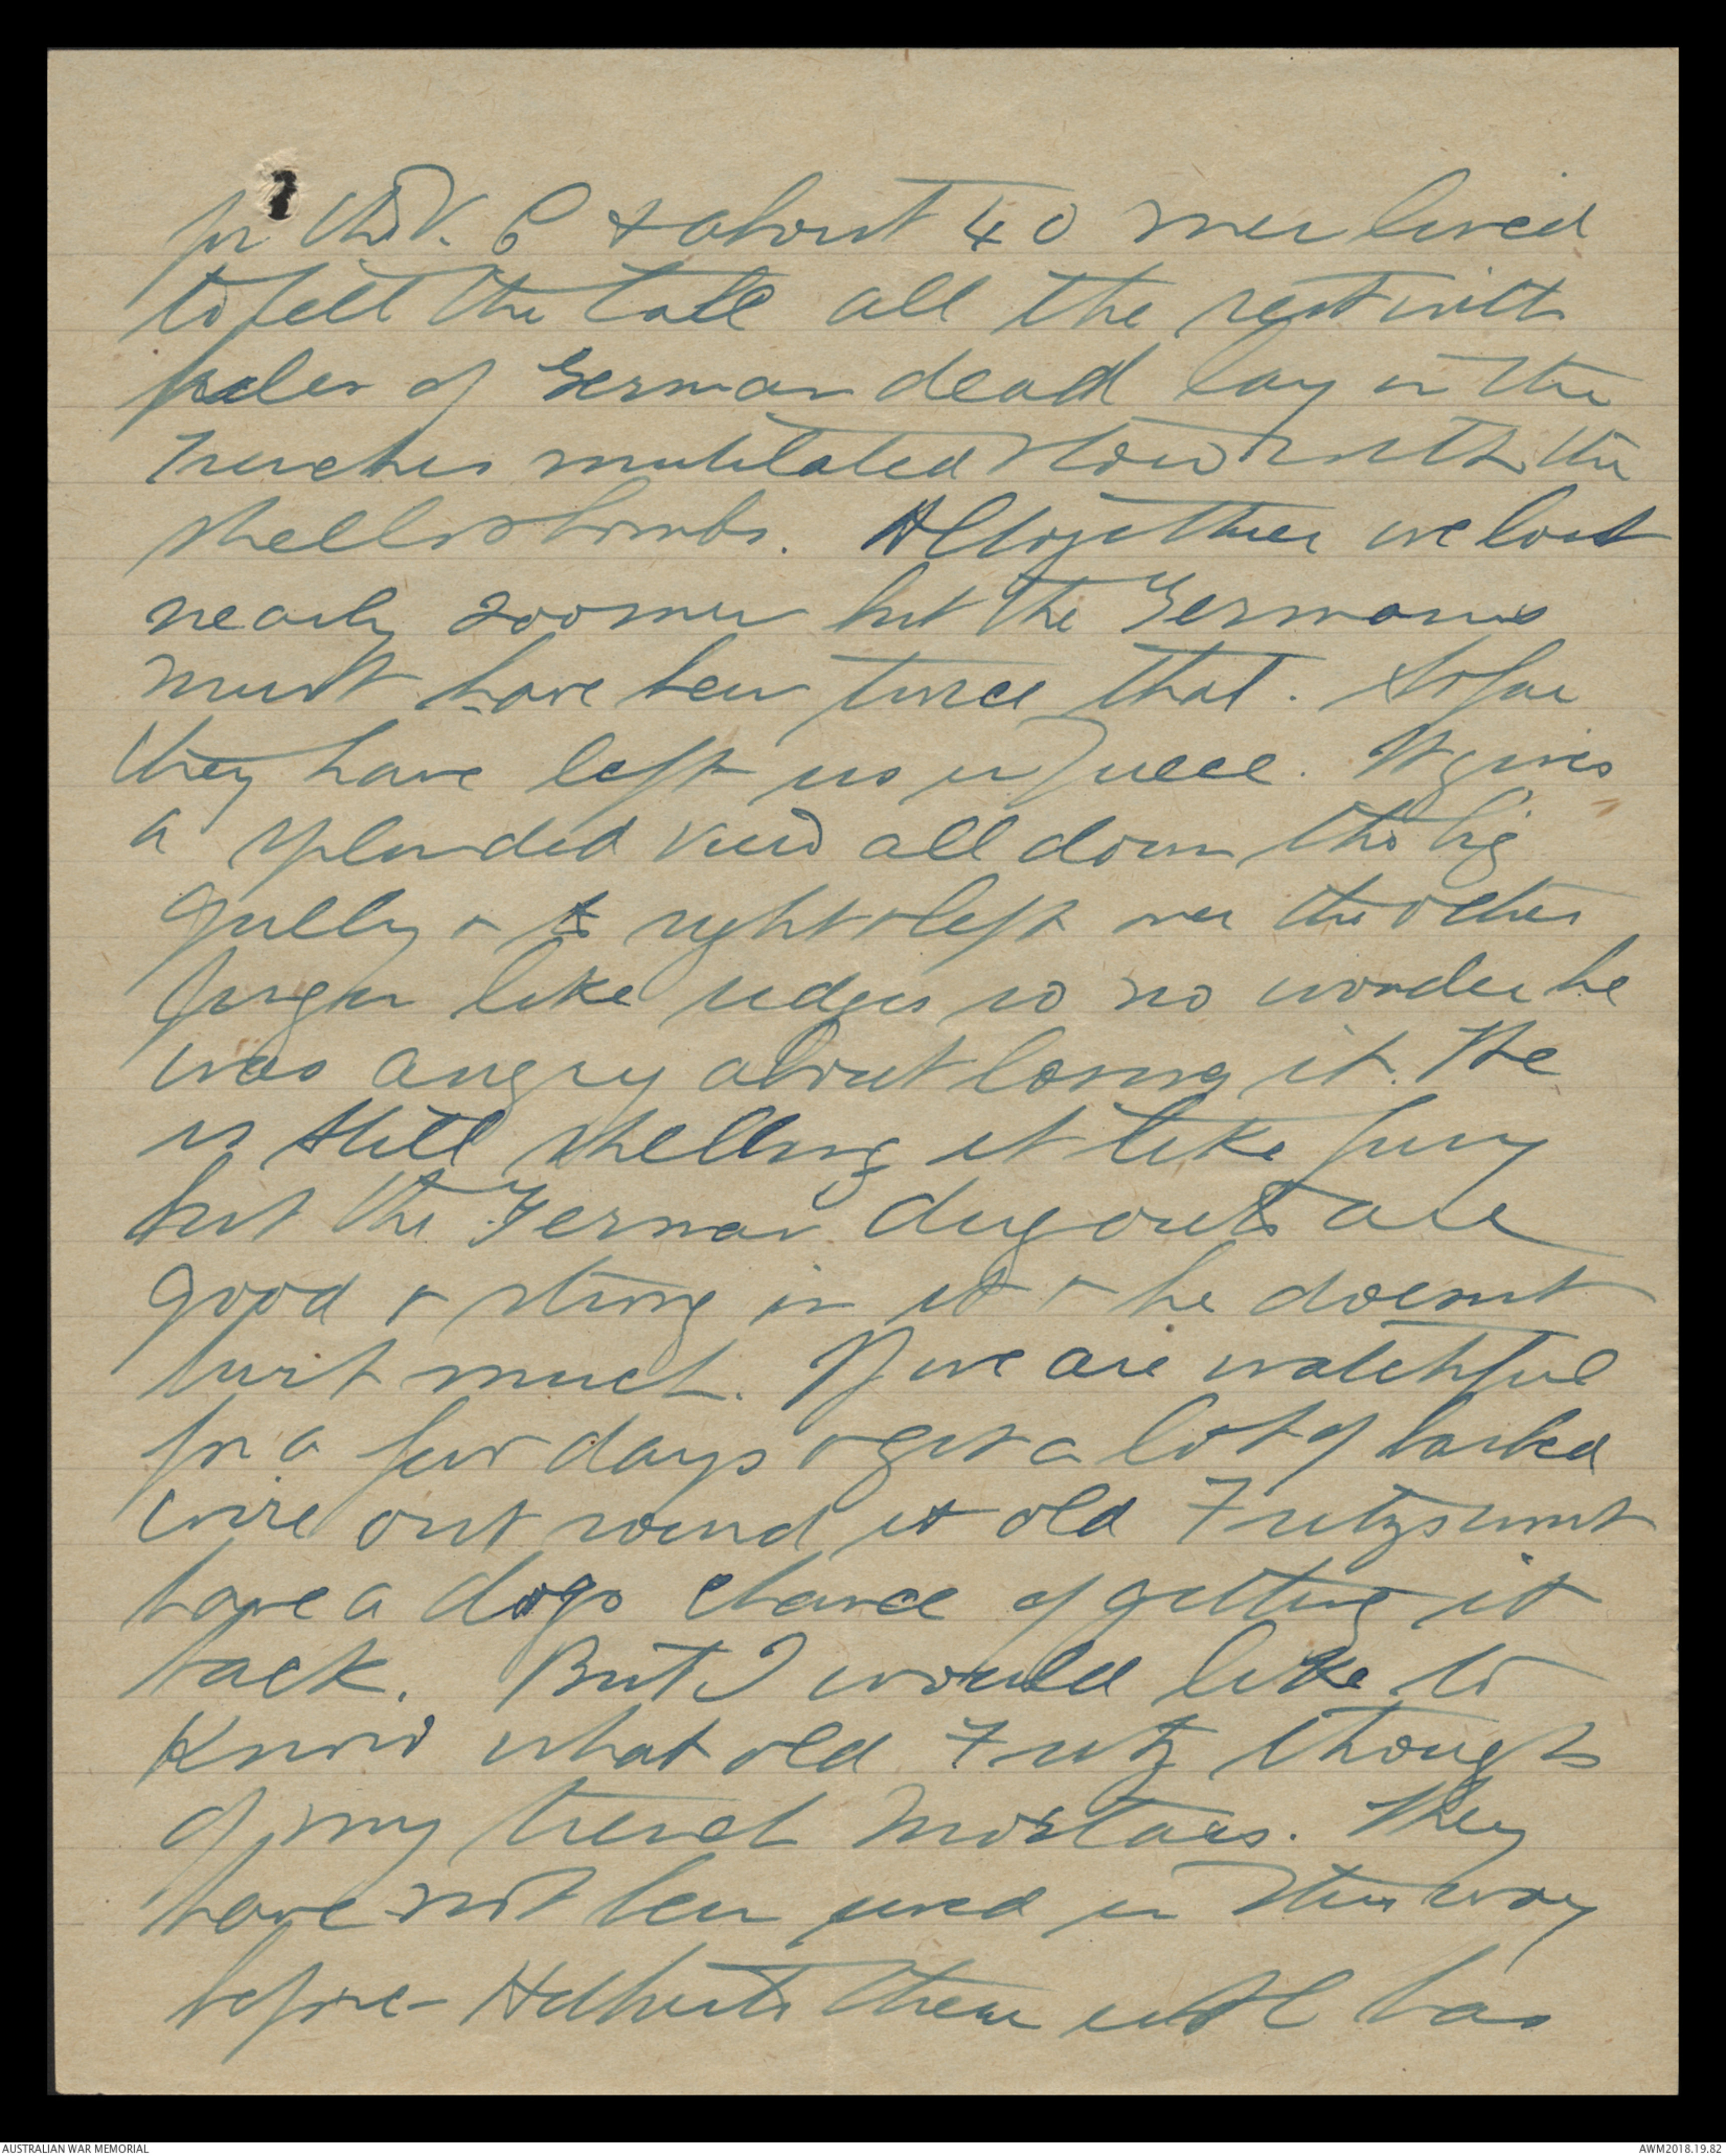 for the V. C & about 40 men lived
to tell the tale all the rest with
piles of German dead lay in the
trenches mutilated & torn with the
shells & bombs. Altogether we lost
nearly 200 men but the Germans
must have been twice that. So far
they have left us in peace. It gives
a splendid view all down the big
gully & to right & left over the other
finger like ridges so no wonder he
was angry about losing it. He
is still shelling it like fury
but the German dug outs are
good & strong in it & he doesnt
hurt much. If we are watchful
for a few days & get a lot of barbed
wire out round it old Fritz wont
have a dogs chance of getting it
back. But I would like to
know what old Fritz thought
of my trench mortars. They
have not been used in this way
before - Hitherto them
has
AUSTRALIAN WAR MEMORIAL
AWM2018.19.82